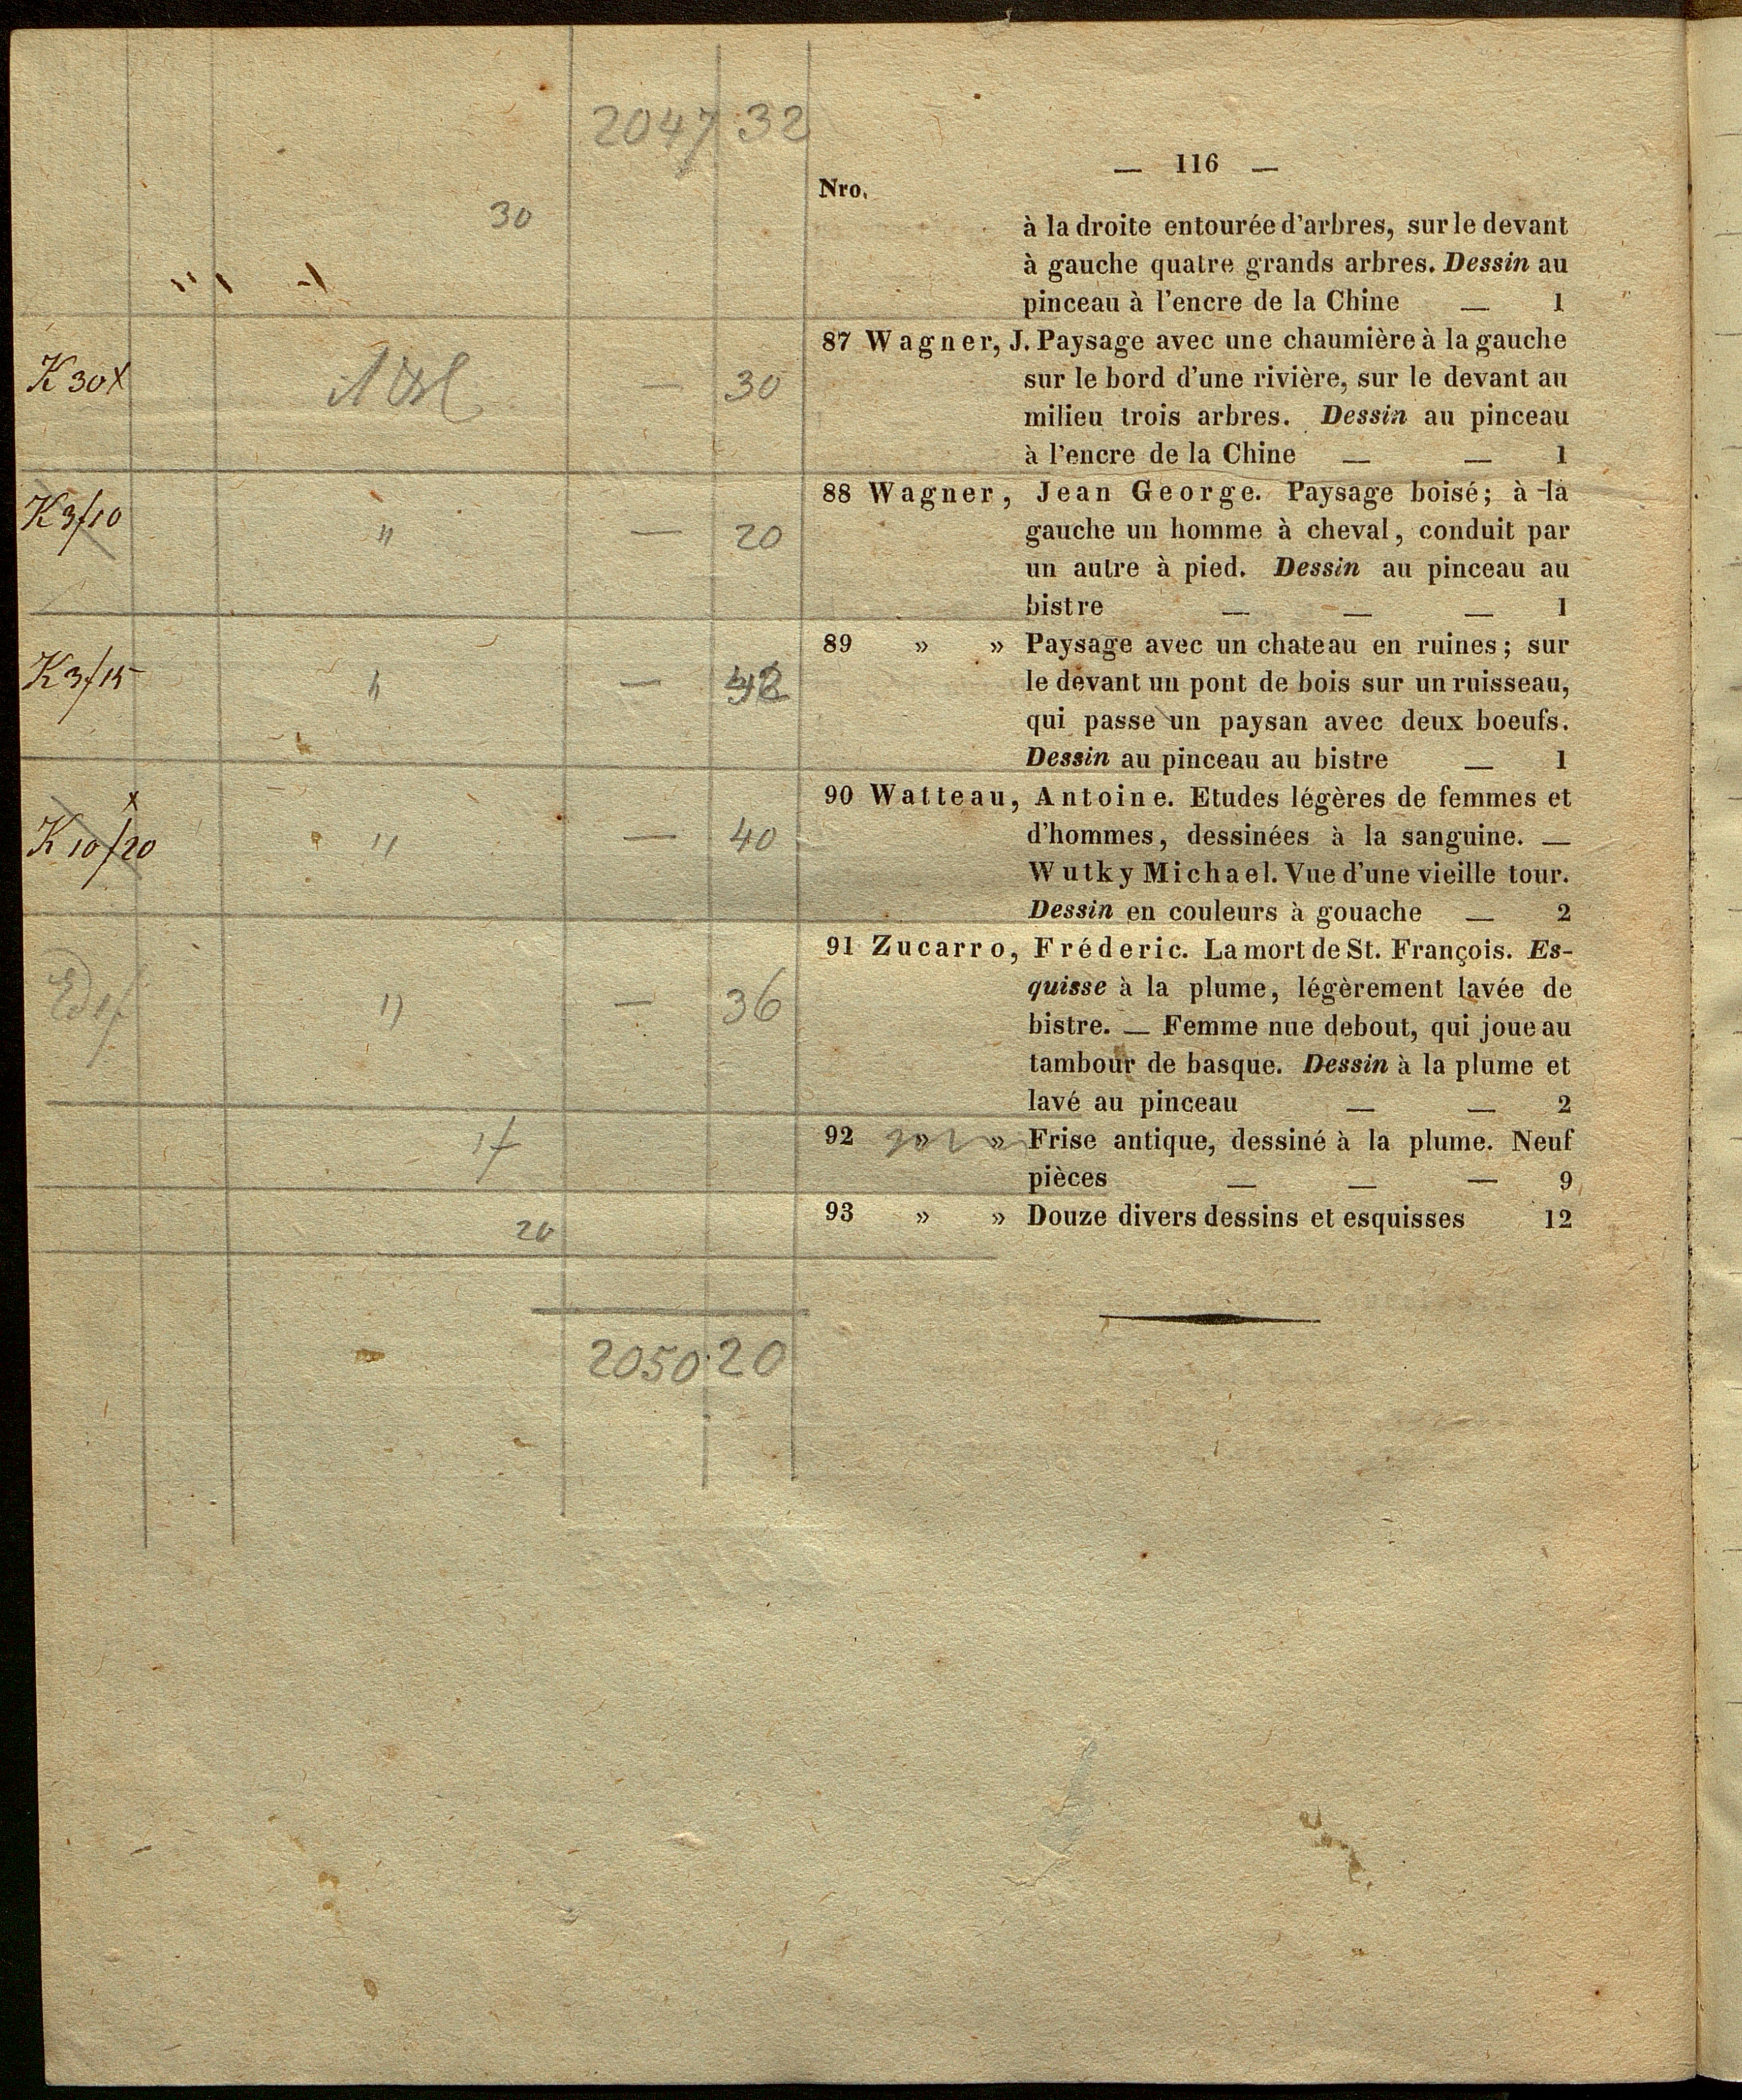 2047 32
— 116 —
Nro.
30
à la droite entourée d'arbres, sur le devant
à gauche quatre grands arbres. Dessin au
pinceau à l'encre de la Chine — 1
87 Wagner, J. Paysage avec une chaumière à la gauche
sur le bord d'une rivière, sur le devant au
K 30 x — 30
milieu trois arbres. Dessin au pinceau
à l'encre de la Chine — — 1
88 Wagner, Jean George. Paysage boisé; à la
K 3/10 " — 20
gauche un homme à cheval, conduit par
un autre à pied. Dessin au pinceau au
bistre — — — 1
89 » » Paysage avec un chateau en ruines; sur
K 3/15 " —
le devant un pont de bois sur un ruisseau,
qui passe un paysan avec deux boeufs.
Dessin au pinceau au bistre — 1
90 Watteau, Antoine. Etudes légères de femmes et
K 10/20 " — 40
d'hommes, dessinées à la sanguine. —
Wutky Michael. Vue d'une vieille tour.
Dessin en couleurs à gouache — 2
91 Zucarro, Fréderic. La mort de St. François. Es-
" — 36
quisse à la plume, légèrement lavée de
bistre. — Femme nue debout, qui joue au
tambour de basque. Dessin à la plume et
lavé au pinceau — — 2
92 » » Frise antique, dessiné à la plume. Neuf
pièces — — — 9
93 » » Douze divers dessins et esquisses 12
20
2050 20